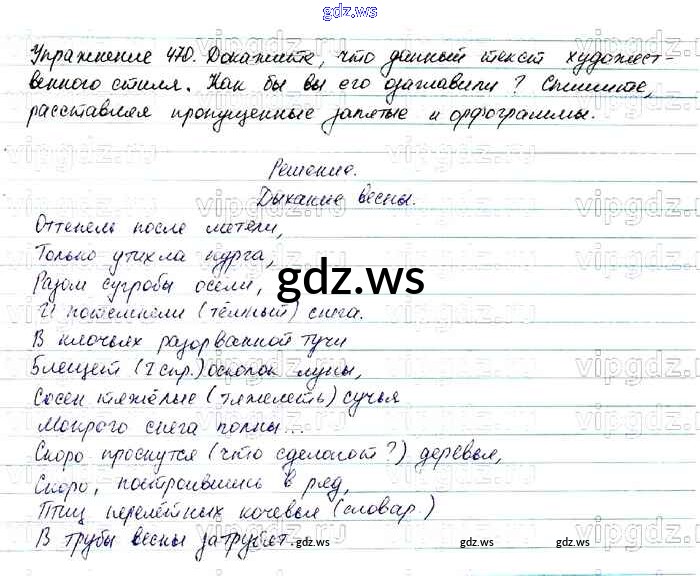 gdz.ws
Упражнение 470. Докажите, что данный текст художест-
венного стиля. Как бы вы его озаглавили? Спишите,
расставляя пропущенные запятые и орфограммы.
Решение.
Дыхание весны.
Оттепель после метели,
Только утихла пурга,
Разом сугробы осели,
gdz.ws
И потемнели (тёмный) снега.
В клочьях разорванной тучи
Блещет (I спр.) осколок луны,
Сосен тяжёлые (тяжелеть) сучья
Мокрого снега полны...
Скоро проснутся (что сделают?) деревья,
Скоро, построившись в ряд,
Птиц перелётных кочевья (словар.)
В трубы весны затрубят.
gdz.ws gdz.ws gdz.ws
vipgdz.ru